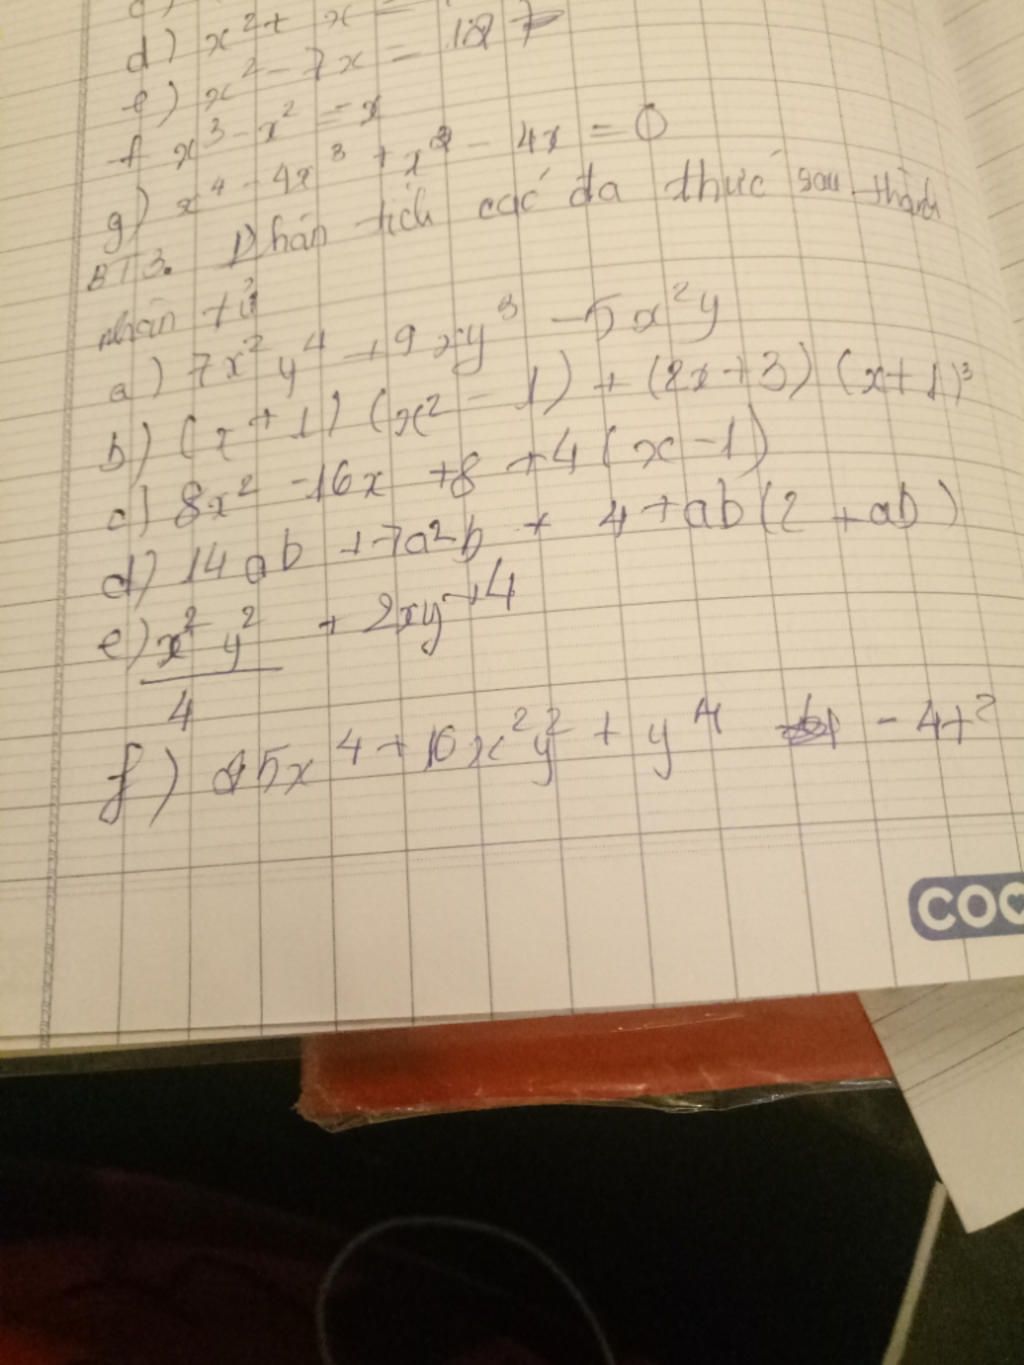 d) x² + x =
e) x² - 7x =
f x³ - x² = x
g) x⁴ - 4x³ + x² - 4x = 0
BT3. Phân tích các đa thức sau thành
nhân tử
a) 7x²y⁴ + 9xy³ - 5x²y
b) (x + 1) (x² - 1) + (2x + 3) (x + 1)³
c) 8x² - 16x + 8 + 4(x - 1)
d) 14ab + 7a²b + 4 + ab(2 + ab)
e) x² y² / 4 + 2xy + 4
f) 25x⁴ + 10x²y² + y⁴ - 4t²